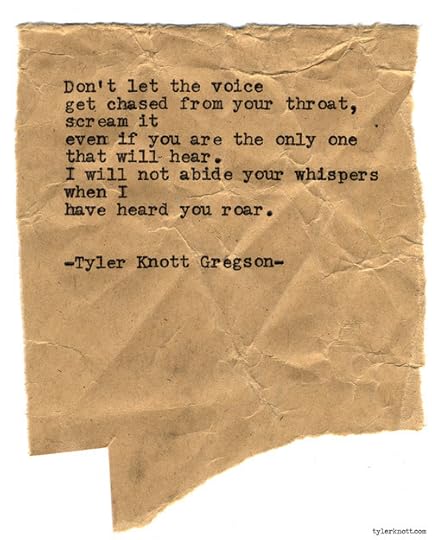 Don't let the voice
get chased from your throat,
scream it
even if you are the only one
that will hear.
I will not abide your whispers
when I
have heard you roar.
-Tyler Knott Gregson-
tylerknott.com